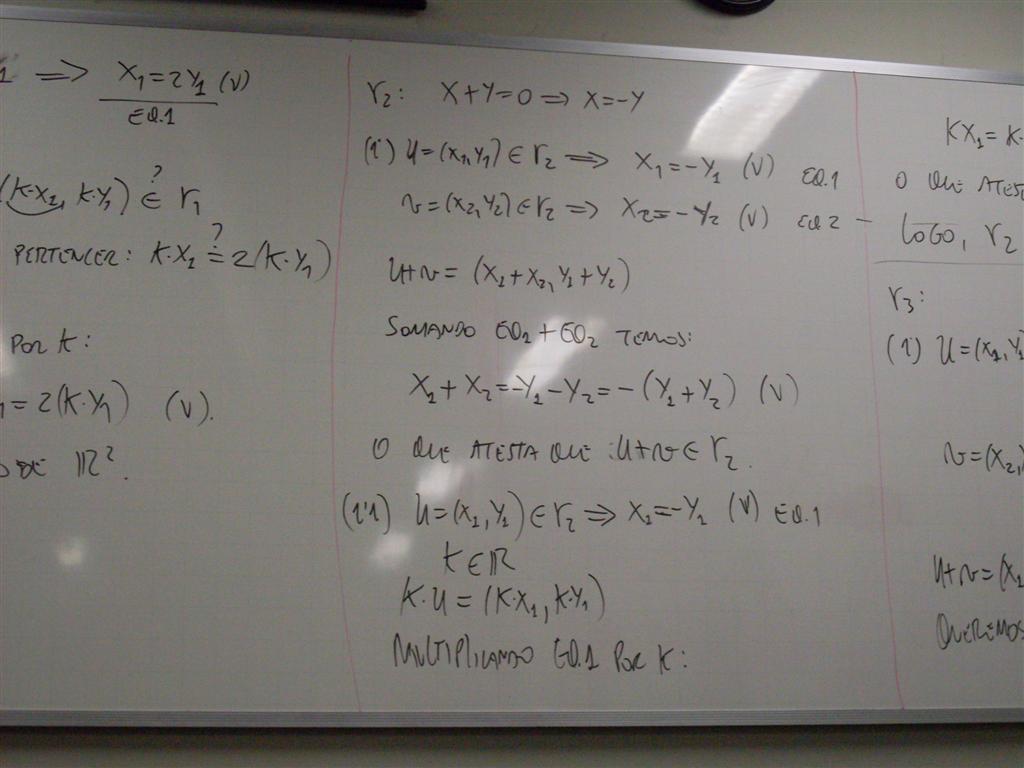 1 ⟹ X₁=2Y₁ (V)
EQ.1
(K·X₁, K·Y₁) ∈ r₁
?
PERTENCER: K·X₁ = 2(K·Y₁)
?
POR K:
₁ = 2(K·Y₁) (V).
DE ℝ².
r₂: X+Y=0 ⟹ X=-Y
(i) U=(X₁,Y₁) ∈ r₂ ⟹ X₁=-Y₁ (V) EQ.1
v=(X₂,Y₂) ∈ r₂ ⟹ X₂=-Y₂ (V) EQ 2 -
U+v = (X₁+X₂, Y₁+Y₂)
SOMANDO EQ₂+EQ₂ TEMOS:
X₁+X₂=-Y₁-Y₂=-(Y₁+Y₂) (V)
O QUE ATESTA QUE : U+v ∈ r₂.
(ii) U=(X₁,Y₁) ∈ r₂ ⟹ X₁=-Y₁ (V) EQ.1
K∈ℝ
K·U = (K·X₁, K·Y₁)
MULTIPLICANDO EQ.1 POR K:
KX₁=K·
O QUE ATEST
LOGO, r₂
r₃:
(i) U=(X₁,Y₁
v=(X₂,
U+v=(X₁
QUEREMOS